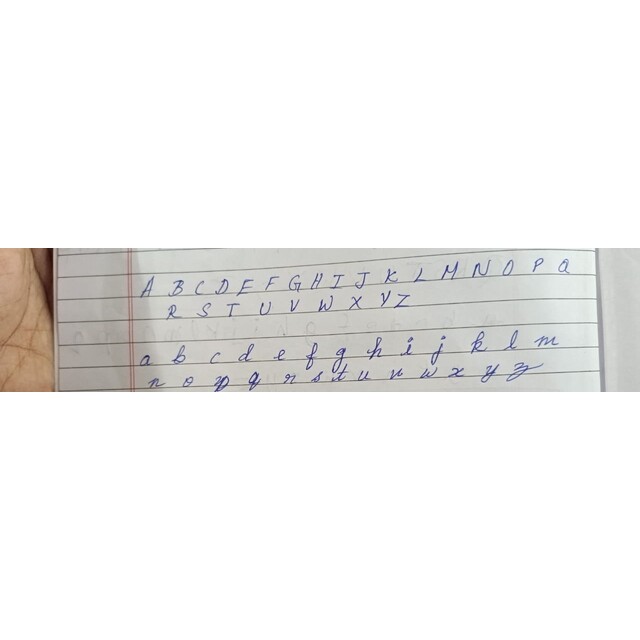 A B C D E F G H I J K L M N O P Q
R S T U V W X Y Z
a b c d e f g h i j k l m
n o p q r s t u v w x y z